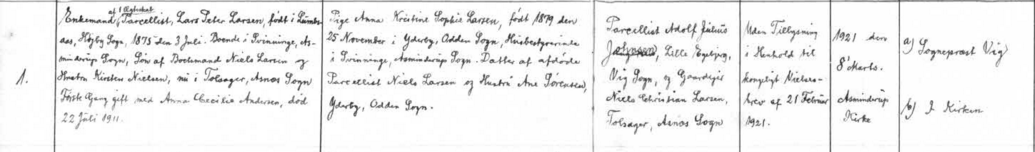 af 1 Ægteskab
Enkemand, Parcellist, Lars Peter Larsen, født i Lumbs-
aas, Højby Sogn, 1875 den 3 Juli. Boende i Svinninge, As-
minderup Sogn, Søn af Boelsmand Niels Larsen og
Hustru Kirsten Nielsen, nu i Tolsager, Asnæs Sogn
Første Gang gift med Anna Cecilie Andersen, død
22 Juli 1911.
1.
Pige Anna Kristine Sophie Larsen, født 1879 den
25 November i Yderby, Odden Sogn, Husbestyrerinde
i Svinninge, Asminderup Sogn. Datter af afdøde
Parcellist Niels Larsen og Hustru Ane Sørensen,
Yderby, Odden Sogn.
Parcellist Adolf Julius
Lille Egebjerg,
Vig Sogn, og Gaardejer
Niels Christian Larsen,
Tolsager, Asnæs Sogn
Uden Tillysning
i Henhold til
kongeligt Vielses-
brev af 21 Februar
1921.
1921 den
8' Marts.
Asminderup
Kirke
a) Sognepræst Vig
b) I Kirken